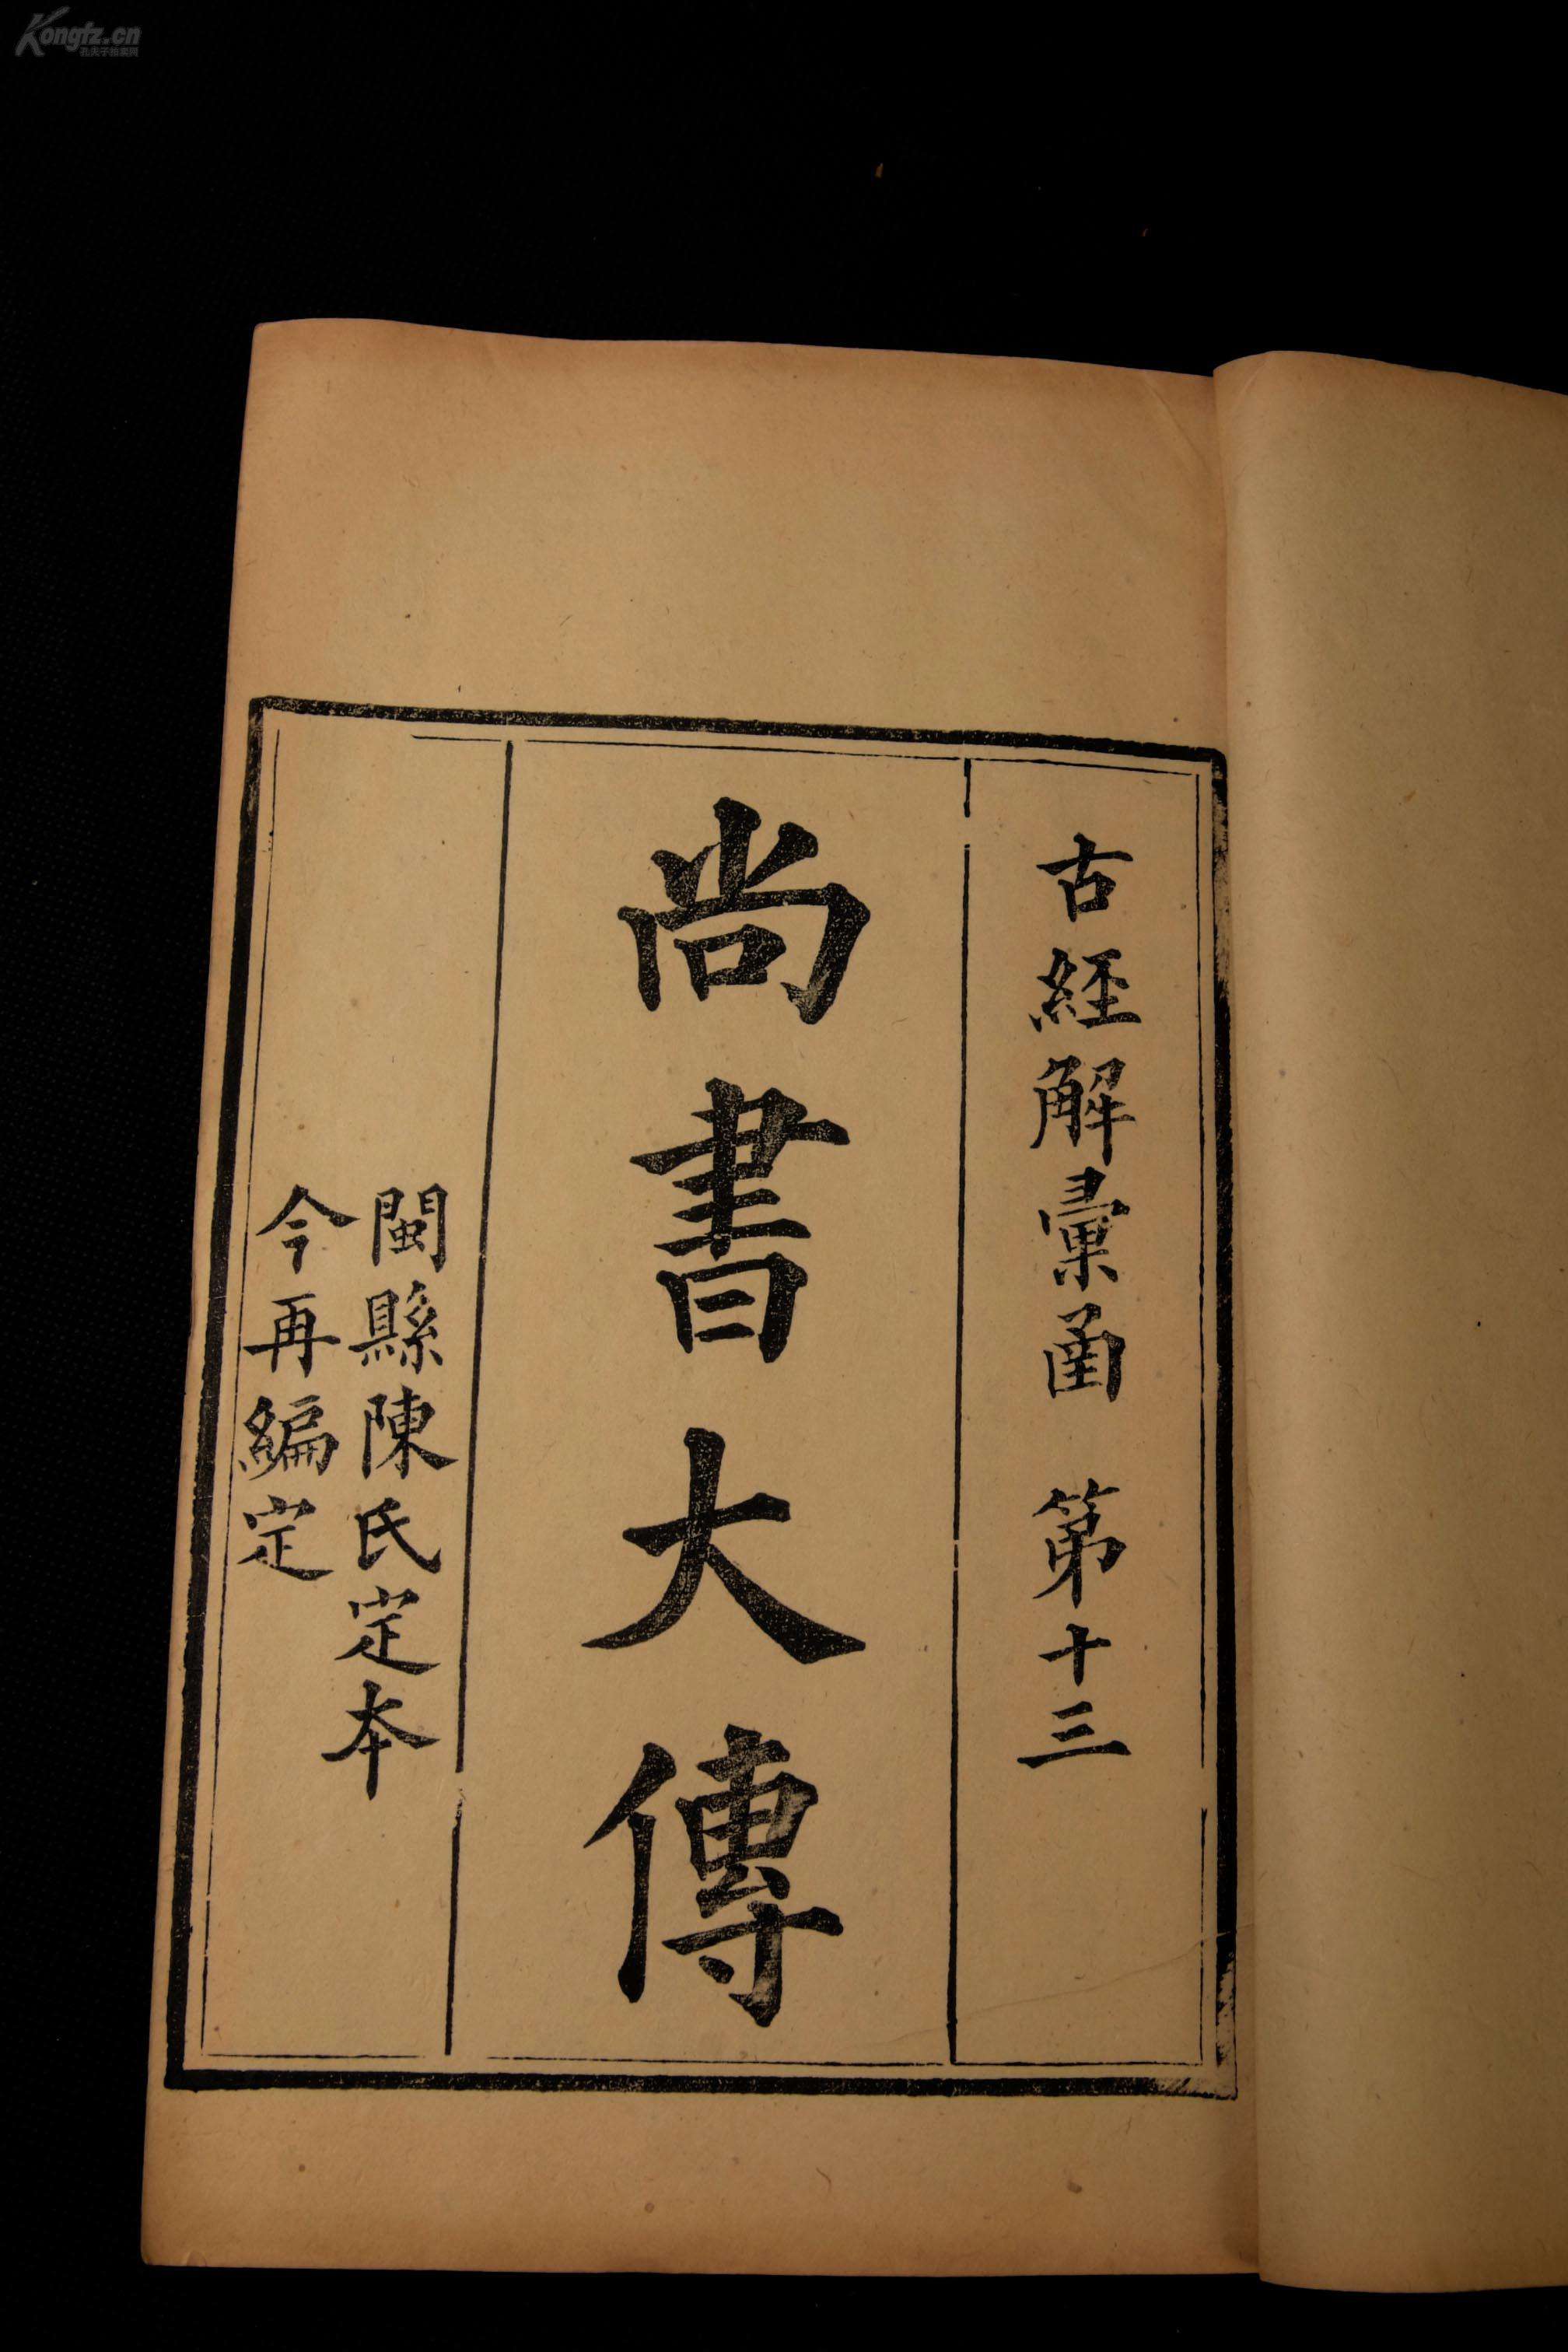 古經解彙函　第十三
尚書大傳
閩縣陳氏定本
今再編定
Kongfz.cn
孔夫子拍卖网